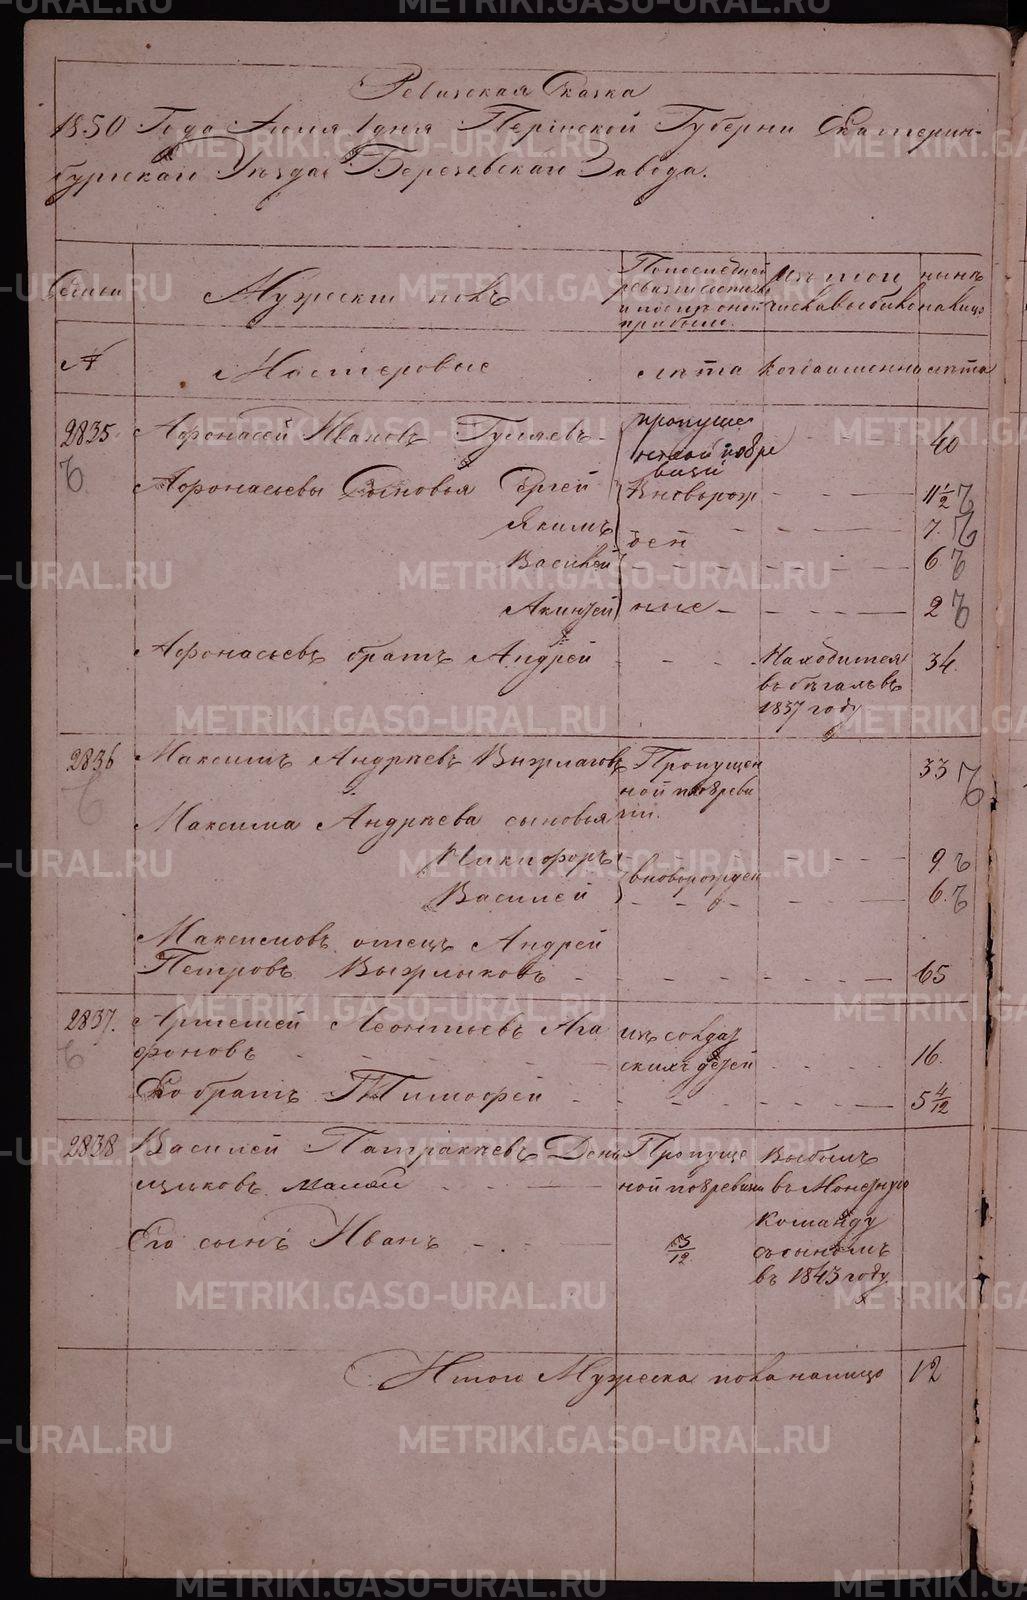 Ревизская Сказка
1850 Года Июня 1 дня Пермской Губерни Екатерин-
бургскаго Уезда Березовскаго Завода.
Семьи
Мужеска полъ
По последней
ревизии состояло
и после оной
прибыло.
Изъ того
числа выбыло
ныне
на лицо
№
Мастеровые
лѣта
Когда именно
лѣта
2835.
Афонасей Ивановъ Гуляевъ
пропуще
нной по 8 ре
визіи
40
Афонасьевы Сыновья Сергей
Вноворож
11 1/2
Якимъ
ден
7.
Василей
6
Акинфей
ные
2
Афонасьевъ братъ Андрей
Находится
въ бѣгахъ въ
1837 году
34.
2836
Максимъ Андреевъ
Пропущен
ной по 8 реви
зіи.
33
Максима Андреева сыновья
Никифоръ
вноворожден
9
Василей
6.
Максимовъ отецъ Андрей
Петровъ
65
2837.
Артемей Леонтьевъ Ага
фоновъ
изъ солдат
скихъ детей
16.
Его братъ Тимофей
5 4/12
2838
Василей Патракеевъ Ден
щиковъ малой
Пропуще
ной по 8 ревизіи
Выбылъ
въ Монетную
Команду
съ сыномъ
въ 1843 году
Его сынъ Иванъ
5/12
Итого Мужеска пола налицо
12
METRIKI.GASO-URAL.RU